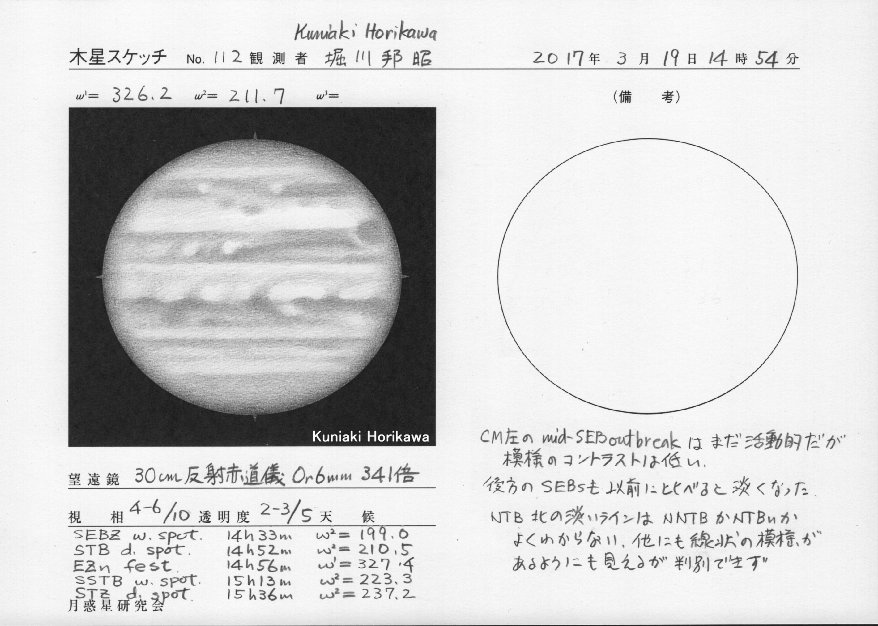 Kuniaki Horikawa
木星スケッチ No. 112 観測者 堀川邦昭 2017年 3月 19日 14時 54分
ω¹= 326.2 ω²= 211.7 ω³=
(備 考)
Kuniaki Horikawa
CM左の mid-SEB outbreak はまだ活動的だが
模様のコントラストは低い.
後方の SEBsも以前に比べると淡くなった.
NTB 北の淡いラインは NNTB か NTBn か
よくわからない. 他にも線状の模様が
あるようにも見えるが判別できず
望遠鏡 30cm 反射赤道儀 Or6mm 341倍
視 相 4-6/10 透明度 2-3/5 天 候
SEBZ w. spot. 14h33m ω²= 199.0
STB d. spot. 14h52m ω²= 210.5
EZn fest. 14h56m ω¹= 327.4
SSTB w. spot. 15h13m ω²= 223.3
STZ d. spot. 15h36m ω²= 237.2
月惑星研究会